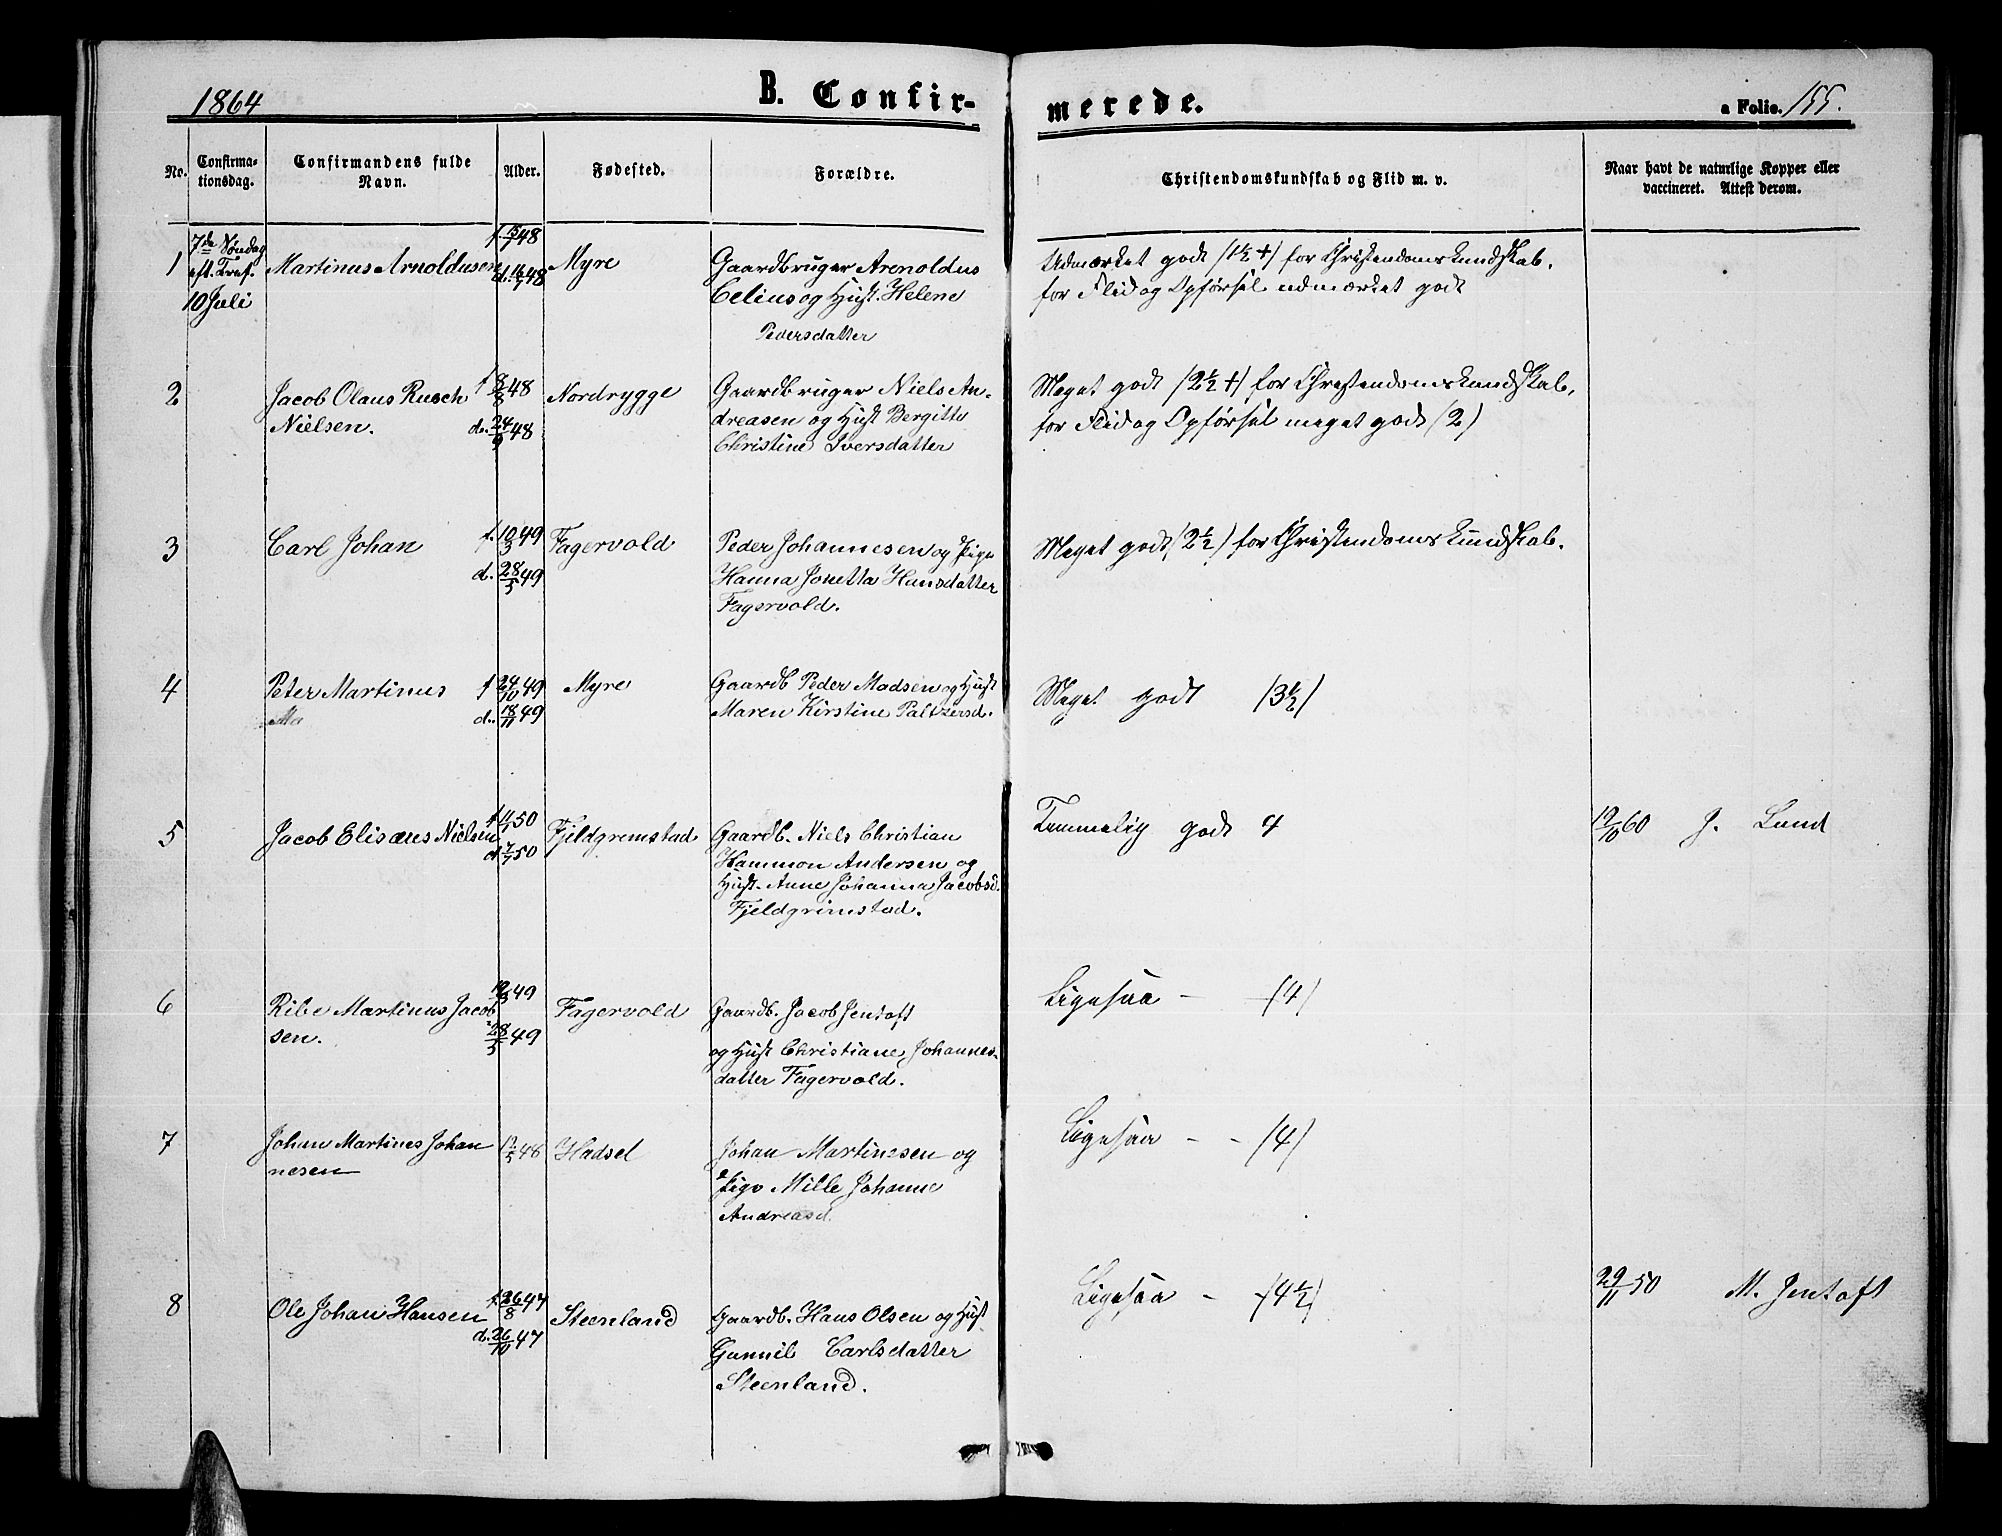 1864
B. Confir-
merede.
a Folio. 155.
No.
Confirma-
tionsdag.
Confirmandens fulde
Navn.
Alder.
Fødested.
Forældre.
Christendomskundskab og Flid m. v.
Naar havt de naturlige Kopper eller
vaccineret. Attest derom.
1
7de Søndag
eft. Tref.
10 Juli
Martinus Arnoldusen
48
48
Myre
Gaardbruger Arenoldus
Celius og Hust. Helene
Pedersdatter
Udmærket godt (1½+) for Christendomskundskab,
for Flid og Opførsel udmærket godt
2
Jacob Olaus Rusch
Nielsen.
f 8/8 48
d. 24/9 48
Nordrygge
Gaardbruger Niels An-
dreasen og Hust Bergitte
Christine Iversdatter
Meget godt (2½+) for Christendomskundskab,
for Flid og Opførsel meget godt (2)
3
Carl Johan
f. 10/3 49
d. 28/5 49
Fagervold
Peder Johannesen og Pige
Hanna Jonetta Hansdatter
Fagervold.
Meget godt (2½) for Christendomskundskab.
4
Peter Martinus
Ma
f 24/10 49
d. 18/11 49
Myre
Gaardb Peder Madsen og Hust
Maren Kirstine Paltzersd.
Meget godt (3½)
5
Jacob Elisæus Nielsen
50
50
Fjeldgremstad
Gaardb. Niels Christian
Hammon Andersen og
Hust. Anne Johanna Jacobsd.
Fjeldgrimstad.
Temmelig godt 4
19/10 60 J. Lund
6
Ribe Martinus Jacob
sen.
49
28/5 49
Fagervold
Gaardb. Jacob Jentoft
og Hust Christiane Johannes-
datter Fagervold.
Ligesaa - (4)
7
Johan Martines Johan
nesen
48
Hadsel
Johan Martinesen og
Pige Mille Johanne
Andreasd.
Ligesaa - - (4)
8
Ole Johan Hansen
f. 26/8 47
d. 26/10 47
Steenland
Gaardb. Hans Olsen og Hust.
Gunnil Carlsdatter
Steenland.
Ligesaa - (4½)
29/11 50 M. Jentoft